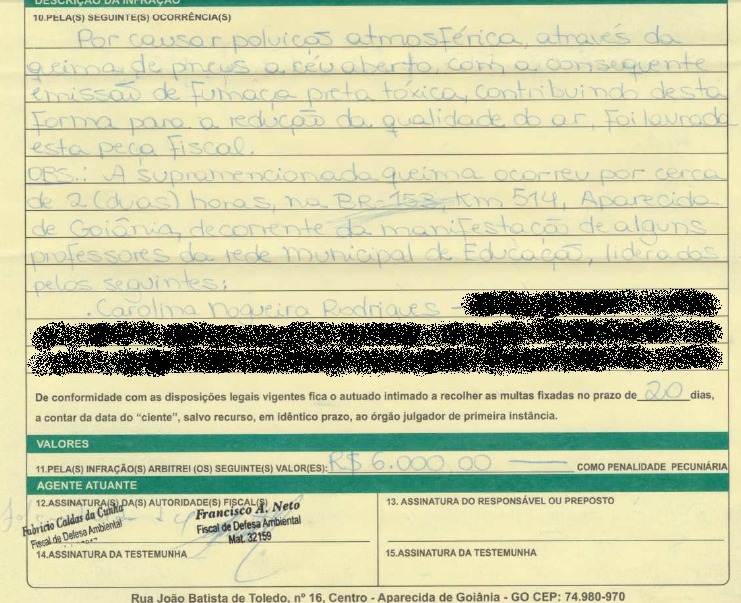 DESCRIÇÃO DA INFRAÇÃO
10.PELA(S) SEGUINTE(S) OCORRÊNCIA(S)
Por causar poluição atmosférica, através da
queima de pneus a céu aberto, com a consequente
emissão de fumaça preta tóxica, contribuindo desta
forma para a redução da qualidade do ar, foi lavrada
esta peça fiscal.
OBS.: A supramencionada queima ocorreu por cerca
de 2 (duas) horas, na BR-153, Km 514, Aparecida
de Goiânia, decorrente da manifestação de alguns
professores da rede municipal de Educação, liderados
pelos seguintes:
. Carolina Nogueira Rodrigues -
De conformidade com as disposições legais vigentes fica o autuado intimado a recolher as multas fixadas no prazo de 20 dias,
a contar da data do “ciente”, salvo recurso, em idêntico prazo, ao órgão julgador de primeira instância.
VALORES
11.PELA(S) INFRAÇÃO(S) ARBITREI (OS) SEGUINTE(S) VALOR(ES): R$ 6.000,00 COMO PENALIDADE PECUNIÁRIA
AGENTE ATUANTE
12.ASSINATURA(S) DA(S) AUTORIDADE(S) FISCAL(S)
Fabricio Caldas da Cunha
Fiscal de Defesa Ambiental
Francisco A. Neto
Fiscal de Defesa Ambiental
Mat. 32159
13. ASSINATURA DO RESPONSÁVEL OU PREPOSTO
14.ASSINATURA DA TESTEMUNHA
15.ASSINATURA DA TESTEMUNHA
Rua João Batista de Toledo, nº 16, Centro - Aparecida de Goiânia - GO CEP: 74.980-970